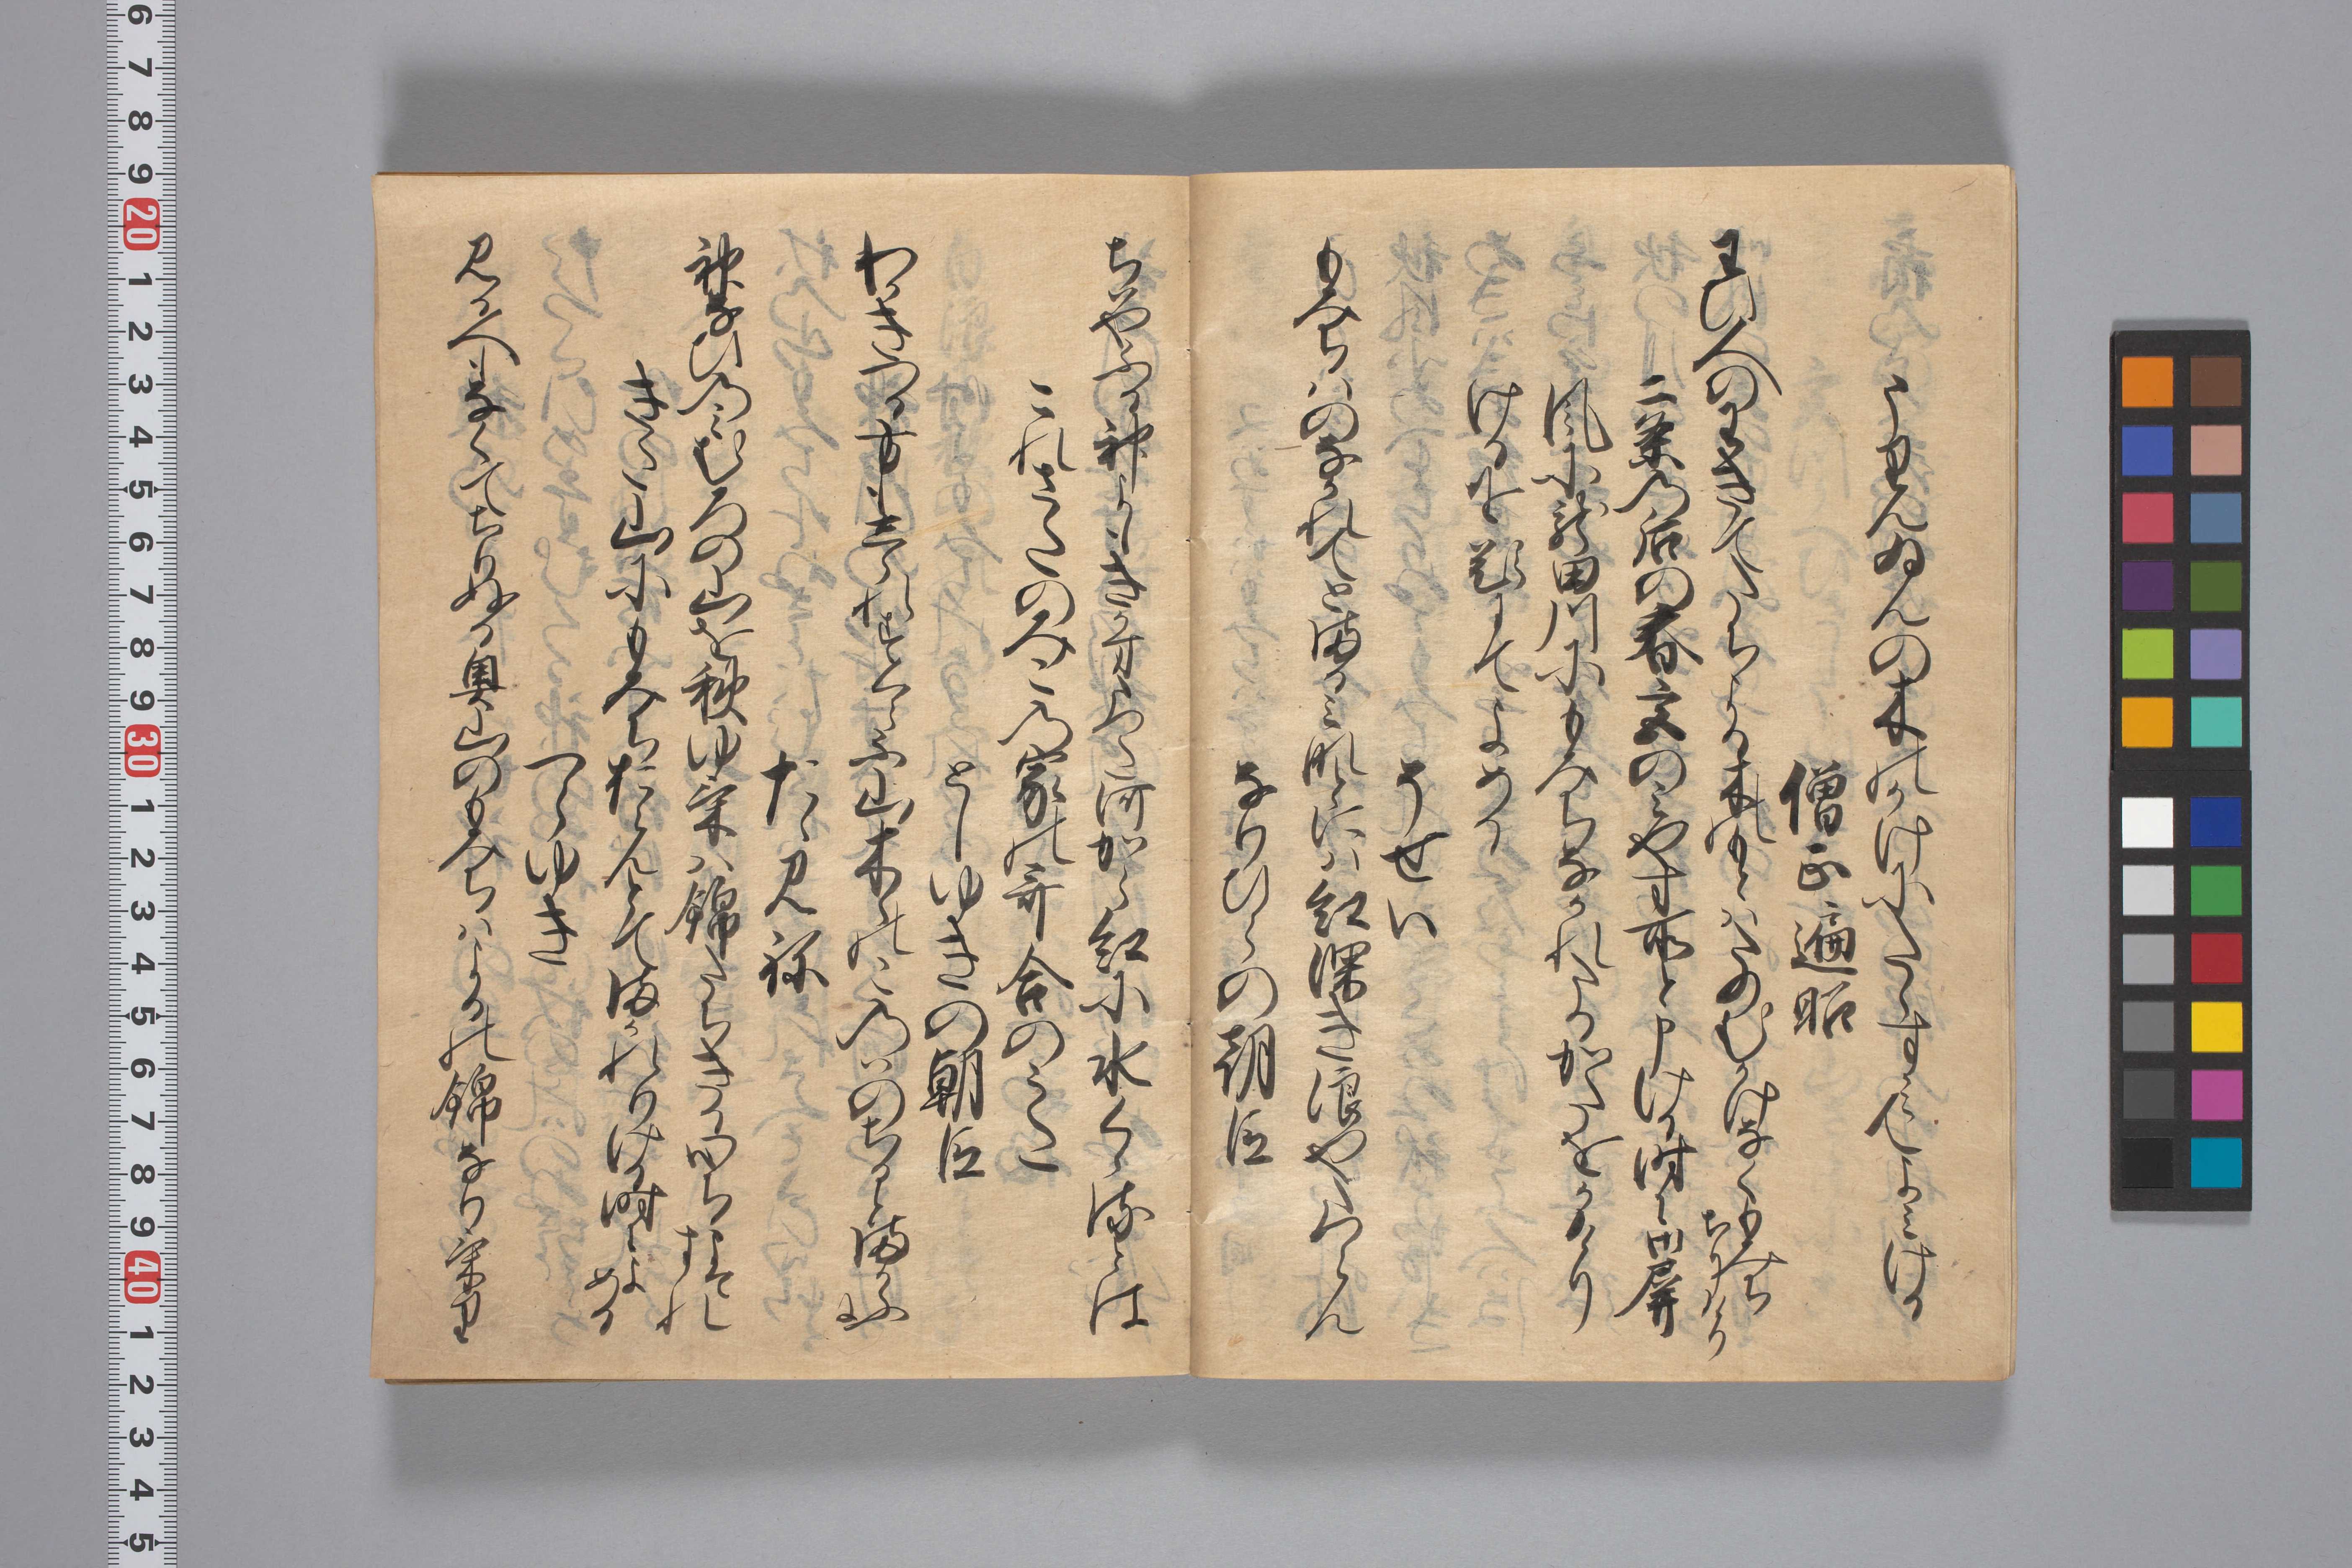 うりんゐんの木のかけにたゝすみてよみける
僧正遍昭
わひ人のわきてたちよる木のもとはたのむかけなくもみちちりけり
二条乃后の春宮のみやす所と申ける時に御屏
風に龍田川にもみちなかれたるかたをかけり
けるを題にてよめる
そせい
もみちはのなかれてとまるみなとには紅深き浪やたつらん
なりひらの朝臣
ちはやふる神よもきかすたつた河から紅に水くゝるとは
これさたのみこの家の哥合のうた
としゆきの朝臣
わかきつるかたもしられすくらふ山木ゝのこのはのちるとまかふに
たゝ見祢
神なひのみむろの山を秋ゆけは錦たちきるこゝちこそすれ
きた山にもみちおらんとてまかれりける時によめる
つらゆき
見る人もなくてちりぬる奥山のもみちはよるの錦なりけり